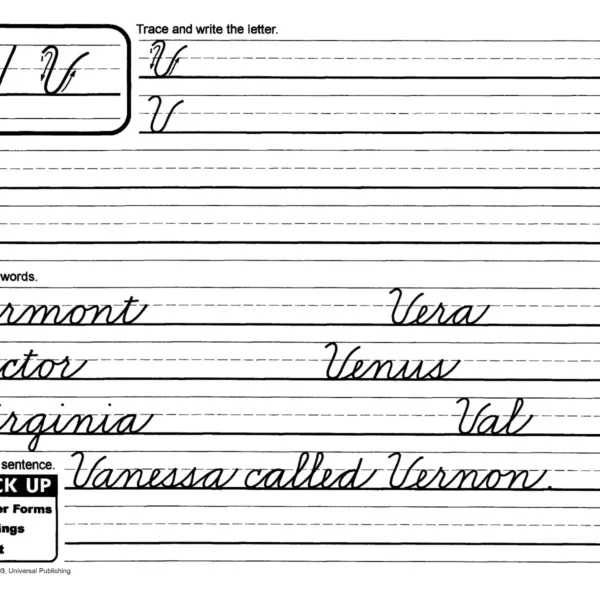 Trace and write the letter.
V V
V
words.
rmont Vera
ctor Venus
irginia Val
sentence.
Vanessa called Vernon.
CK UP
er Forms
ngs
t
3, Universal Publishing